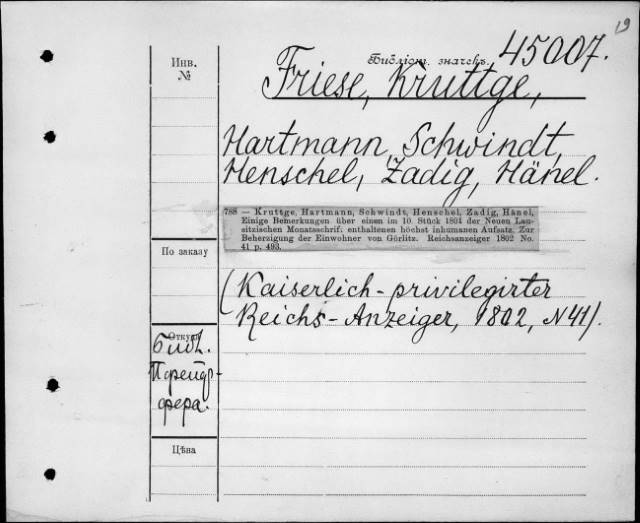 19
Библіот. значекъ. 45007.
Инв.
№
Friese, Kruttge,
Hartmann, Schwindt,
Henschel, Zadig, Hänel.
788 — Kruttge, Hartmann, Schwindt, Henschel, Zadig, Hänel,
Einige Bemerkungen über einen im 10. Stück 1801 der Neuen Lau-
sitzischen Monatsschrif. enthaltenen höchst inhumanen Aufsatz. Zur
Beherzigung der Einwohner von Görlitz. Reichsanzeiger 1802 No.
41 p. 493.
По заказу
(Kaiserlich-privilegirter
Reichs-Anzeiger, 1802, N41).
Откуда
Библ.
Цѣна